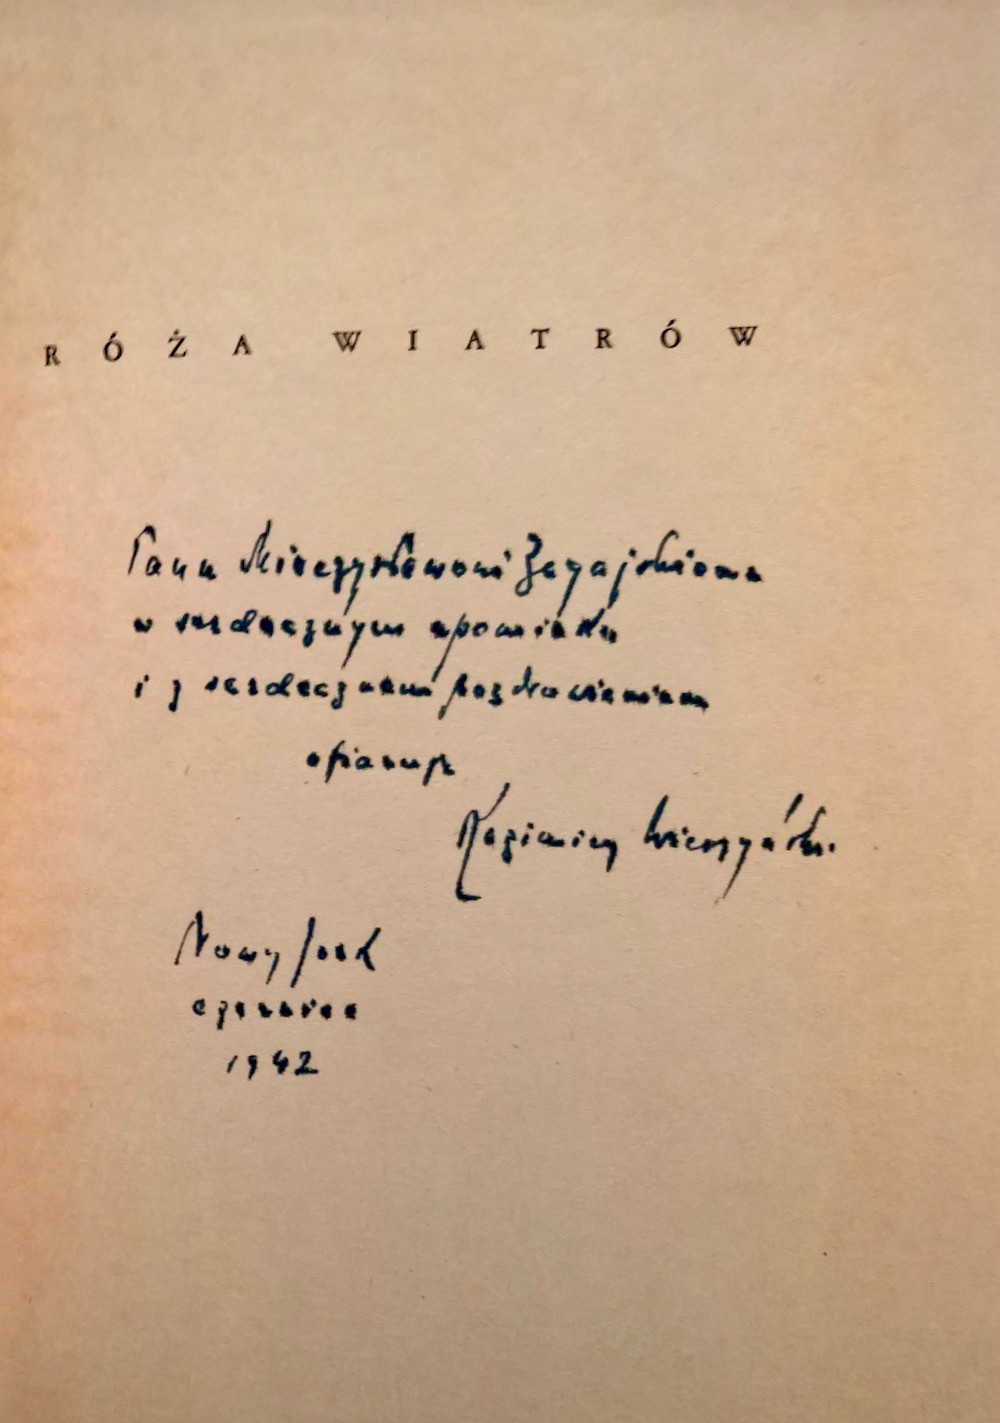 RÓŻA WIATRÓW
Panu Mieczysławowi Zagajskiemu
w serdecznym upominku
i z serdecznem pozdrowieniem
ofiaruję
Kazimierz Wierzyński.
Nowy Jork
czerwiec
1942